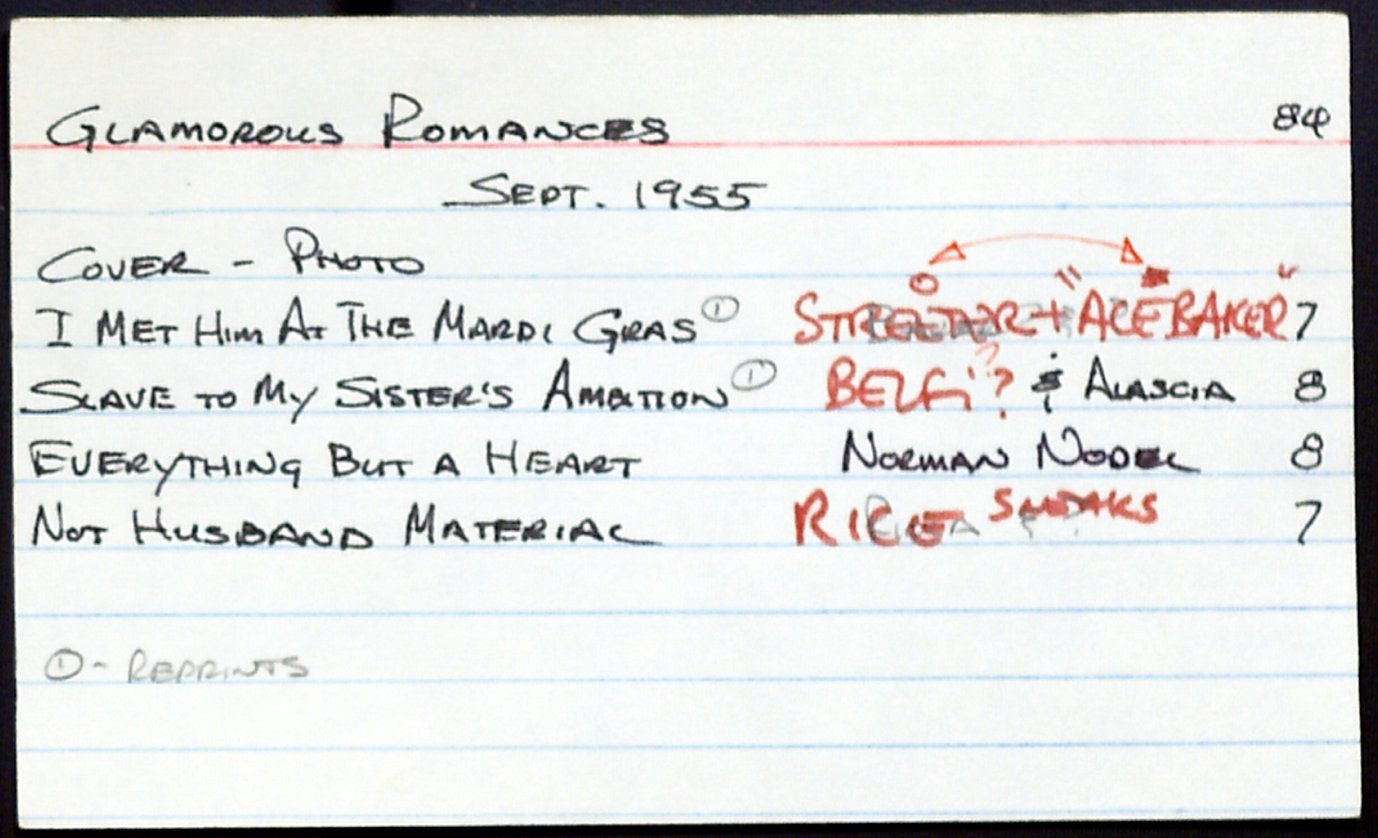 GLAMOROUS ROMANCES 84
SEPT. 1955
COVER - PHOTO
I MET HIM AT THE MARDI GRAS ① STREETER + "ACE BAKER" 7
SLAVE TO MY SISTER'S AMBITION ① BELFI? & ALASCIA 8
EVERYTHING BUT A HEART NORMAN NODEL 8
NOT HUSBAND MATERIAL RICE 7
① - REPRINTS